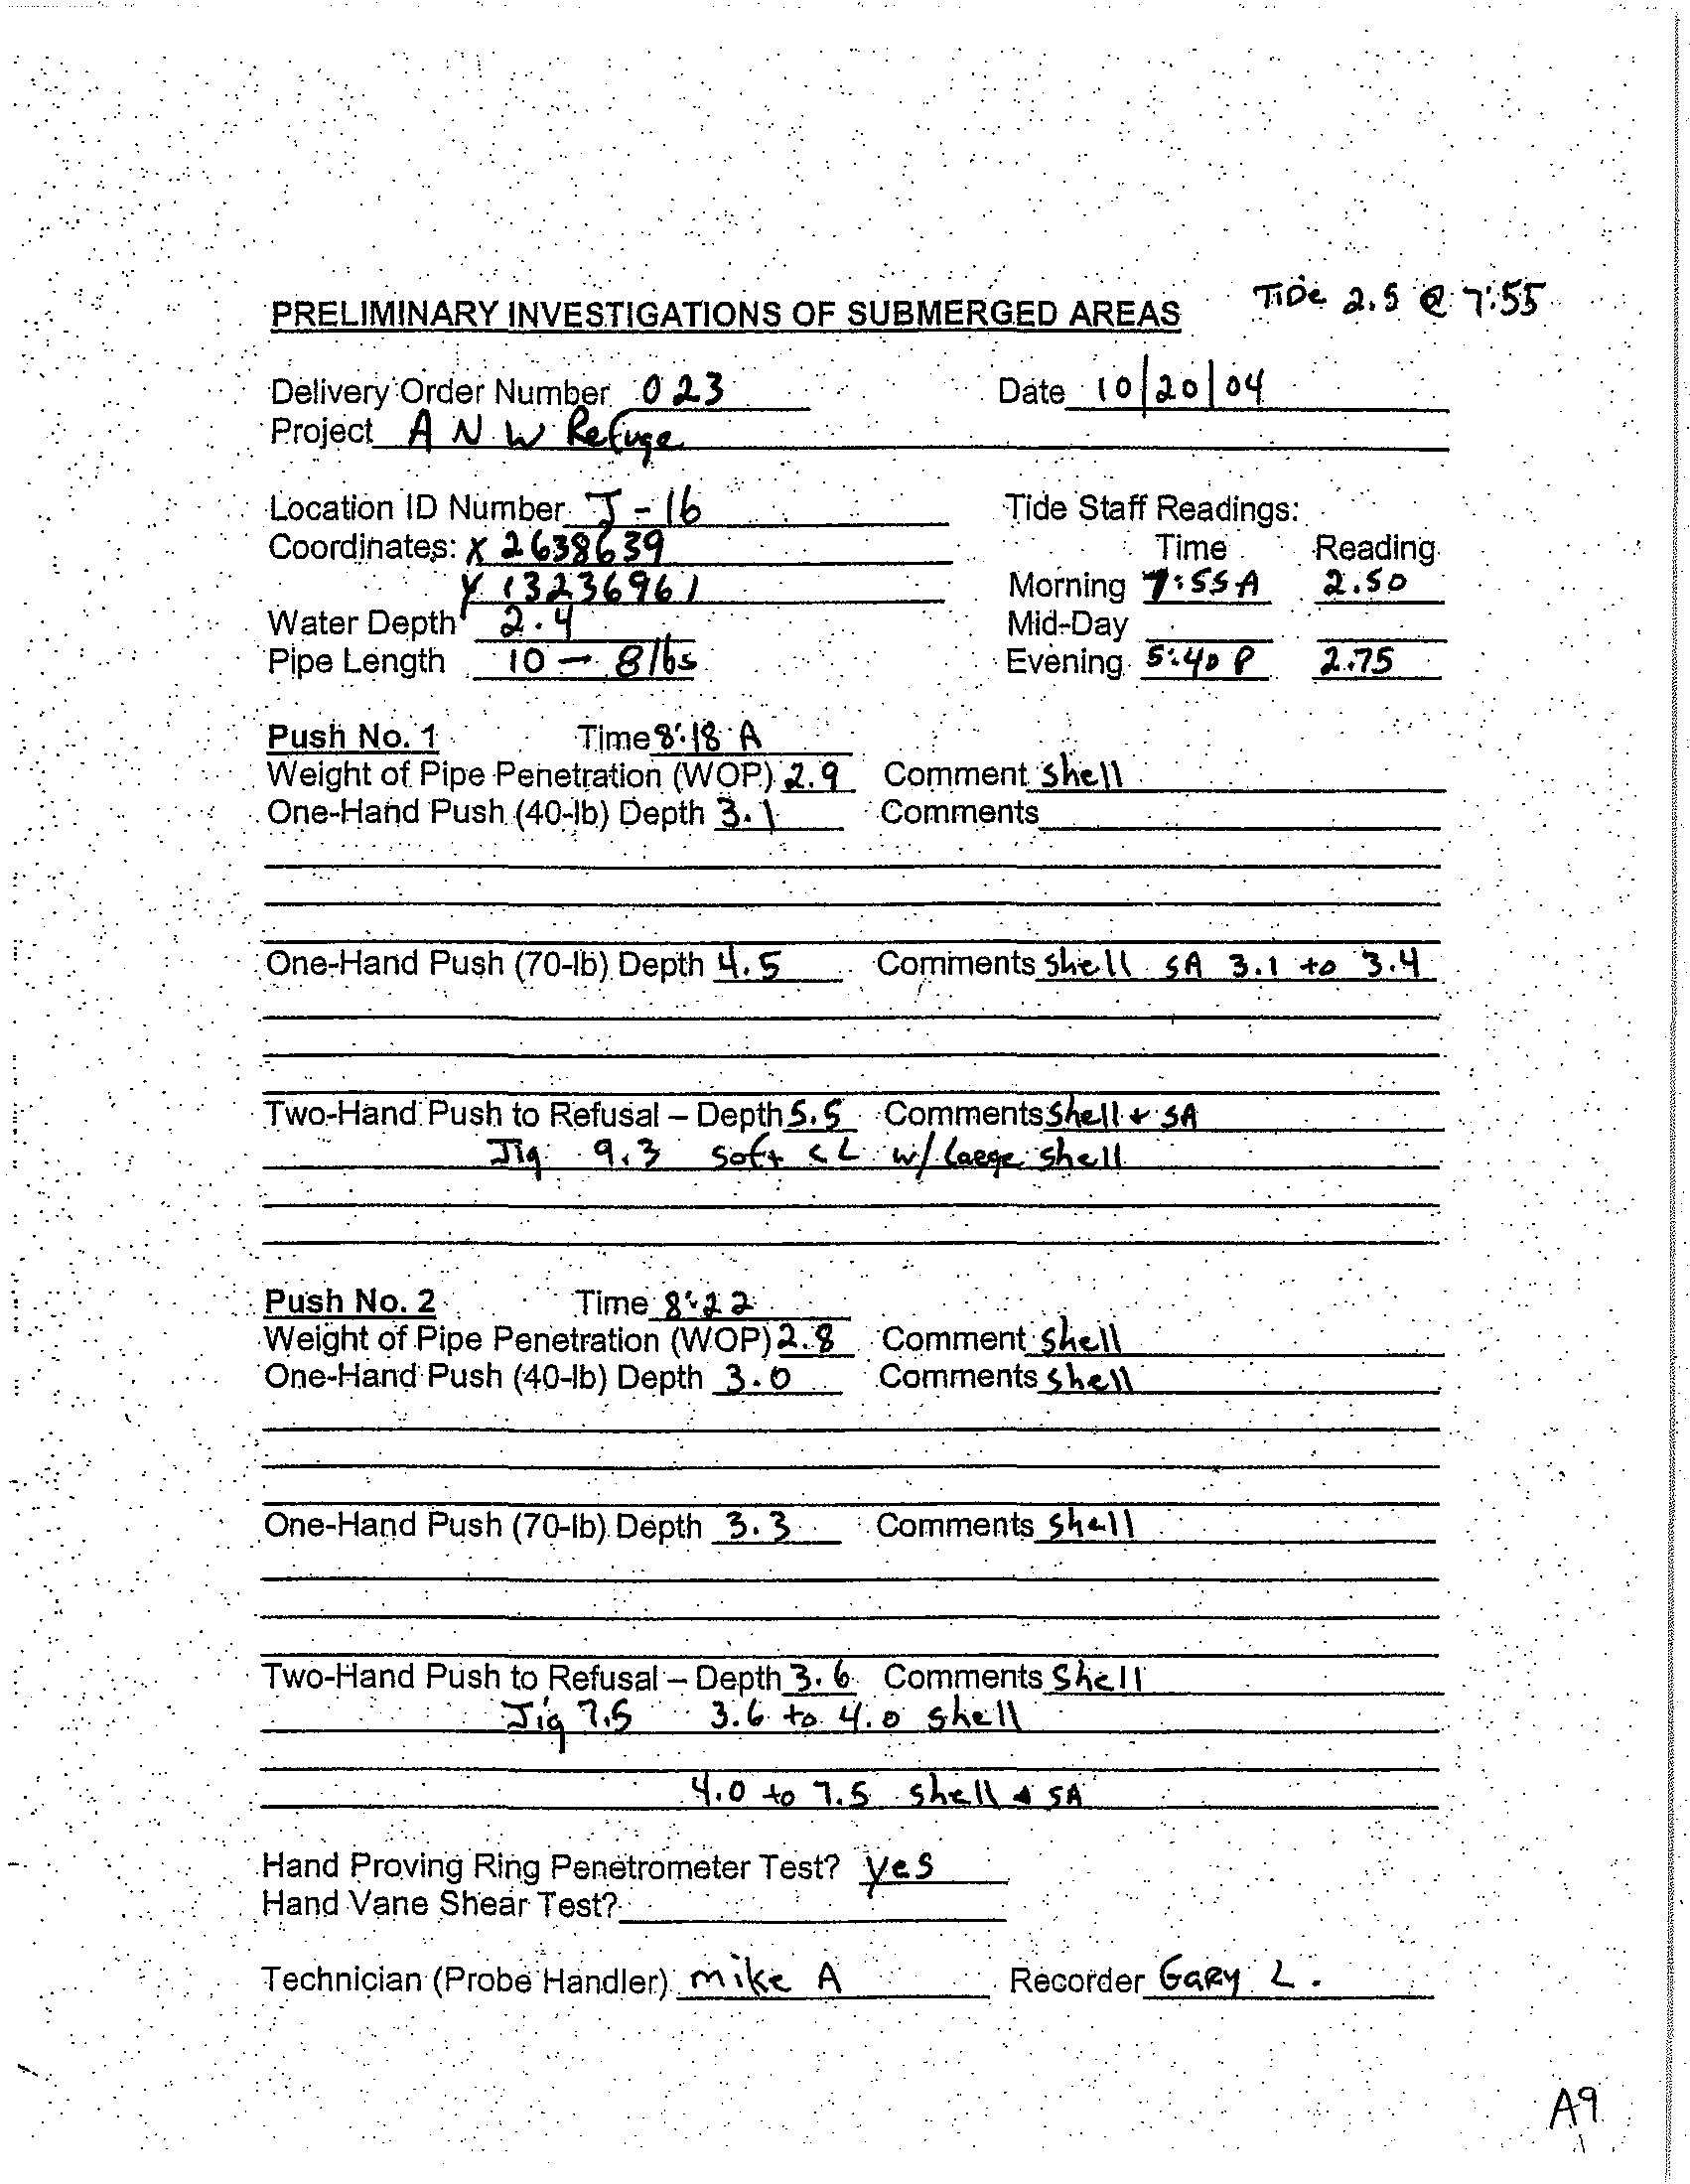 PRELIMINARY INVESTIGATIONS OF SUBMERGED AREAS TiDe 2.5 @ 7:55
Delivery Order Number 023 Date 10/20/04
Project A N W Refuge
Location ID Number J-16 Tide Staff Readings:
Coordinates: X 2638639 Time Reading
Y 13236961 Morning 7:55A 2.50
Water Depth 2.4 Mid-Day
Pipe Length 10 - 8 lbs Evening 5:40 P 2.75
Push No. 1 Time 8:18 A
Weight of Pipe Penetration (WOP) 2.9 Comment shell
One-Hand Push (40-lb) Depth 3.1 Comments
One-Hand Push (70-lb) Depth 4.5 Comments shell SA 3.1 to 3.4
Two-Hand Push to Refusal – Depth 5.5 Comments Shell + SA
Jig 9.3 soft CL w/ Large shell
Push No. 2 Time 8:22
Weight of Pipe Penetration (WOP) 2.8 Comment shell
One-Hand Push (40-lb) Depth 3.0 Comments shell
One-Hand Push (70-lb) Depth 3.3 Comments shell
Two-Hand Push to Refusal – Depth 3.6 Comments Shell
Jig 7.5 3.6 to 4.0 shell
4.0 to 7.5 shell & SA
Hand Proving Ring Penetrometer Test? yes
Hand Vane Shear Test?
Technician (Probe Handler) mike A Recorder GaRy L.
A9